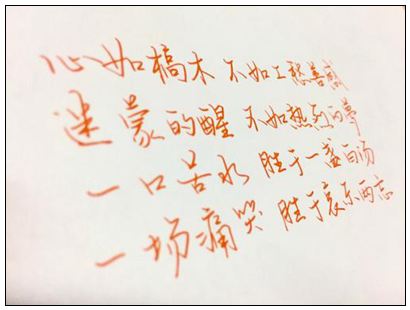 心如槁木 不如工愁善感
迷蒙的醒 不如热烈的梦
一口苦水 胜于一盏白汤
一场痛哭 胜于哀乐两忘